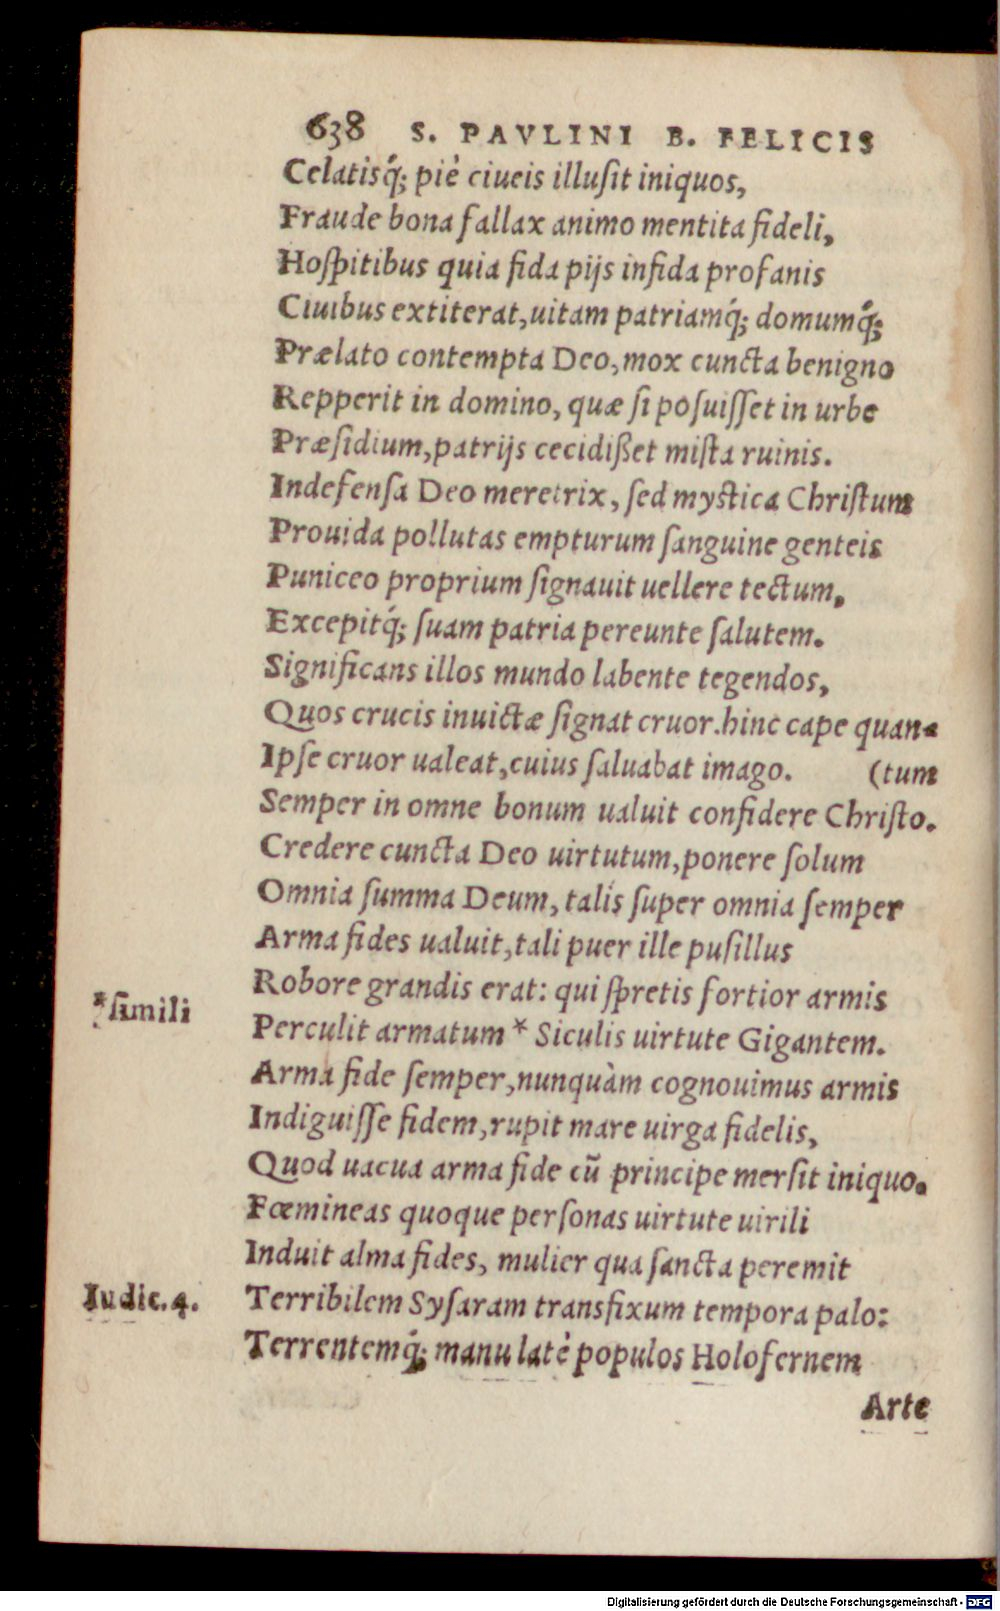 638 S. PAVLINI B. FELICIS
Celatisq́; piè ciueis illuſit iniquos,
Fraude bona fallax animo mentita fideli,
Hoſpitibus quia fida pijs infida profanis
Ciuibus extiterat, uitam patriamq́; domumq́;
Prælato contempta Deo, mox cuncta benigno
Repperit in domino, quæ ſi poſuiſſet in urbe
Præſidium, patrijs cecidißet miſta ruinis.
Indefenſa Deo meretrix, ſed myſtica Chriſtum
Prouida pollutas empturum ſanguine genteis
Puniceo proprium ſignauit uellere tectum,
Excepitq́; ſuam patria pereunte ſalutem.
Significans illos mundo labente tegendos,
Quos crucis inuictæ ſignat cruor. hinc cape quan-
Ipſe cruor ualeat, cuius ſaluabat imago. (tum
Semper in omne bonum ualuit confidere Chriſto.
Credere cuncta Deo uirtutum, ponere ſolum
Omnia ſumma Deum, talis ſuper omnia ſemper
Arma fides ualuit, tali puer ille puſillus
Robore grandis erat: qui ſpretis fortior armis
*ſimili
Perculit armatum * Siculis uirtute Gigantem.
Arma fide ſemper, nunquàm cognouimus armis
Indiguiſſe fidem, rupit mare uirga fidelis,
Quod uacua arma fide cū principe merſit iniquo.
Fœmineas quoque perſonas uirtute uirili
Induit alma fides, mulier qua ſancta peremit
Iudic. 4.
Terribilem Syſaram transfixum tempora palo:
Terrentemq́; manu latè populos Holofernem
Arte
Digitalisierung gefördert durch die Deutsche Forschungsgemeinschaft - DFG